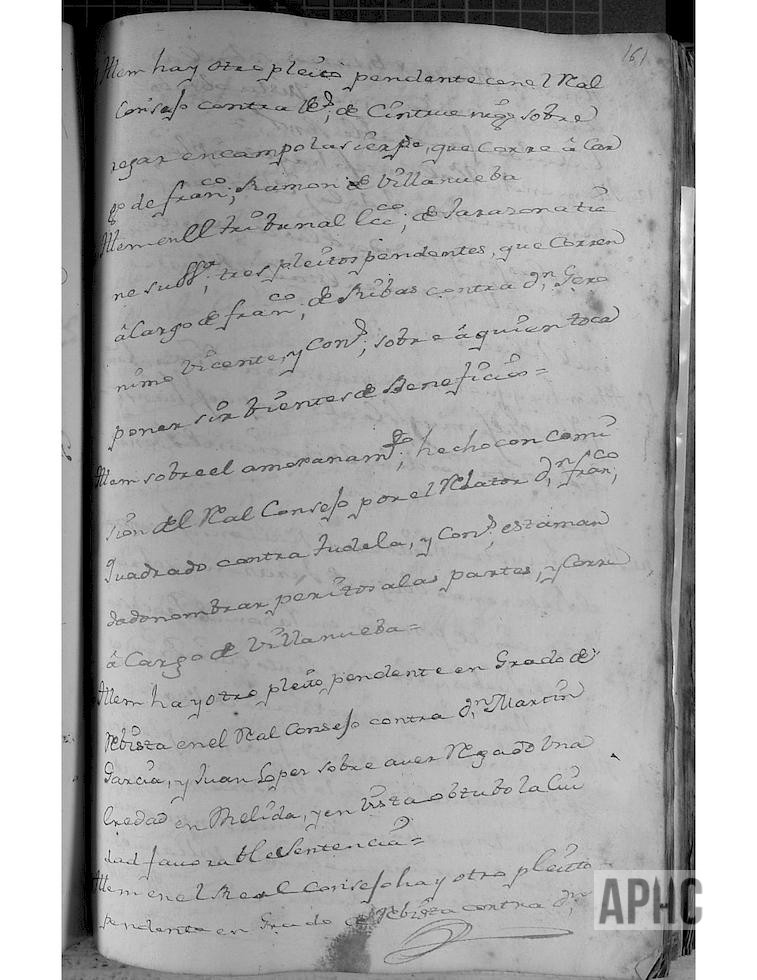 161
Ittem hay otro pleito pendente en el Real
Consejo contra de Cintruenigo sobre
regar en campo la sierpe, que Corre â Car
go de fran.co Ramon de Villanueba
Ittem en ll tribunal de Tarazona tie
ne su tres pleitos pendentes, que Corren
â Cargo de fran.co de Ribas contra d.n Gero
nimo Vicente, y Con.; sobre â quien toca
poner sirbientes de Beneficios =
Ittem sobre el amoxanam.to hecho con Comi
sion del Real Consejo por el Relator d.n fran.co
Quadrado contra Tudela, y Con. està man
dado nombrar peritos a las partes, y Corre
â Cargo de Villanueba =
Ittem hay otro pleito pendente en Grado de
Rebista en el Real Consejo contra d.n Martin
Garcia, y Juan Loper sobre aver Regado Una
eredad en Melida, y en Vista obtubo la Ciu
dad favorable Sentencia =
Ittem en el Real Consejo hay otro pleito
pendente en Grado de Rebista contra d.n
APHC